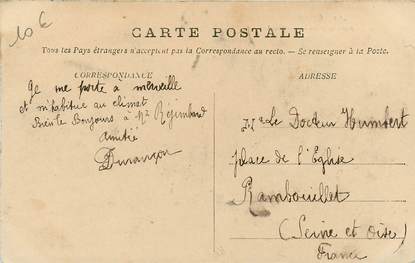 10 €
CARTE POSTALE
Tous les Pays étrangers n'acceptent pas la Correspondance au recto. — Se renseigner à la Poste.
CORRESPONDANCE
Je me porte à merveille
et m'habitue au climat
Bien le Bonjour à Mr
amitié
ADRESSE
Le Docteur Humbert
place de l'Eglise
Rambouillet
(Seine et Oise)
France